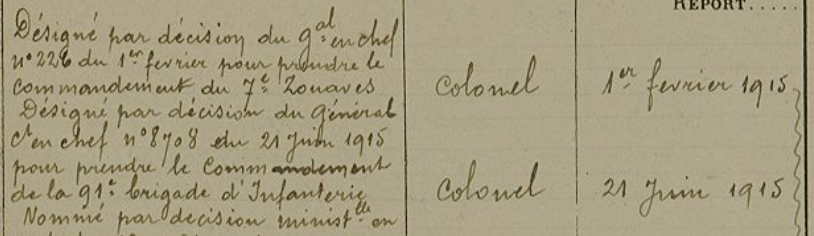 REPORT.....
Désigné par décision du g^al en chef
n° 226 du 1^er fevrier pour prendre le
commandement du 7^e Zouaves
Colonel
1^er fevrier 1915
Désigné par décision du Général
C^t en chef n° 8708 du 21 Juin 1915
pour prendre le Commandement
de la 91^e brigade d'Infanterie
Colonel
21 Juin 1915
Nommé par decision minist^elle en